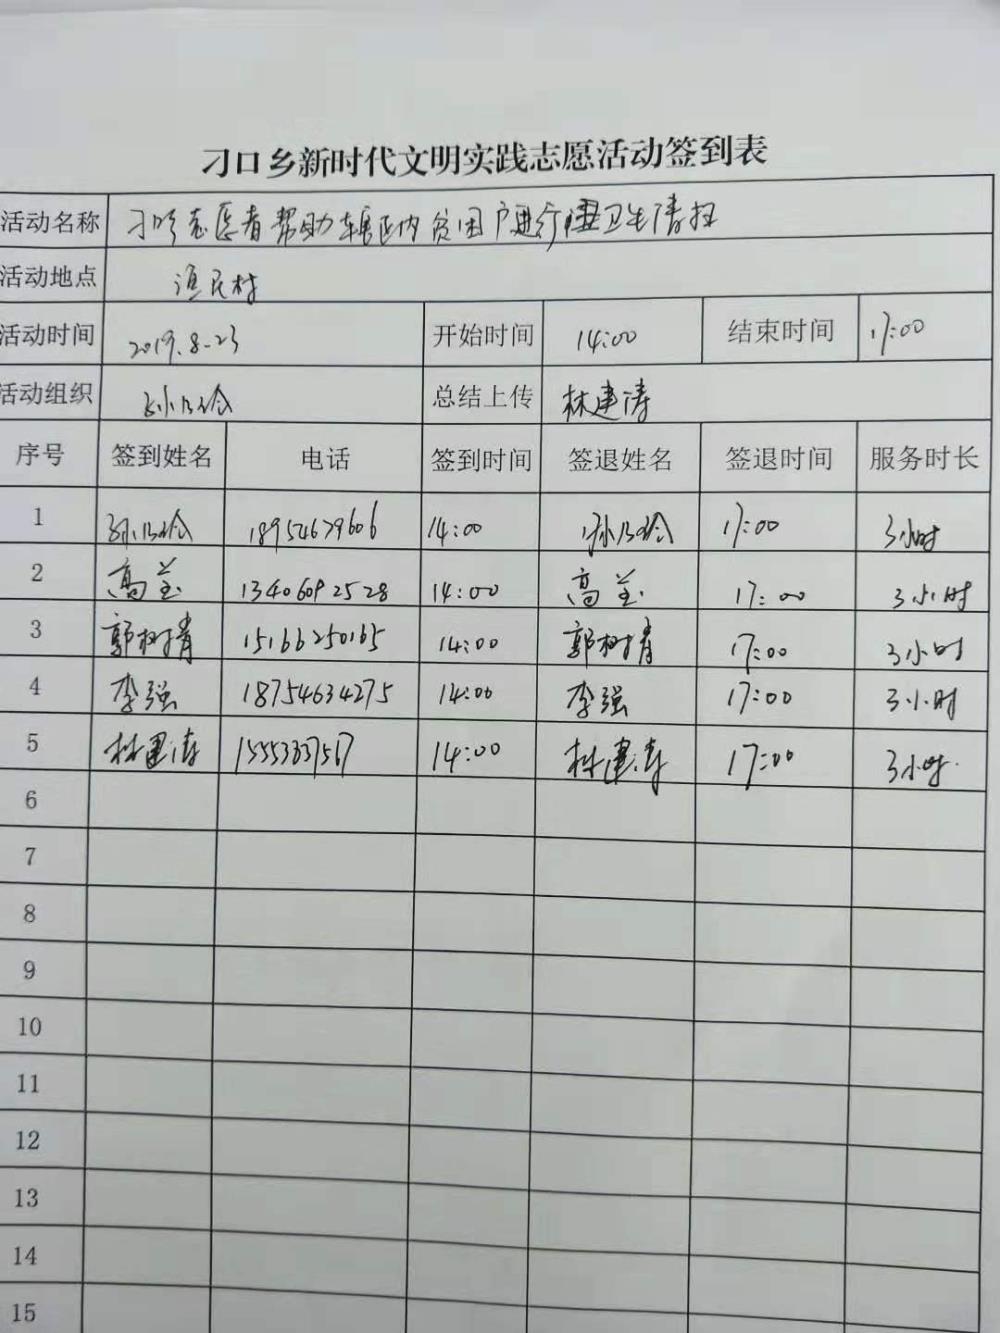 刁口乡新时代文明实践志愿活动签到表
活动名称 刁口志愿者帮助辖区内贫困户进行卫生清扫
活动地点 渔民村
活动时间 2019.8.23 开始时间 14:00 结束时间 17:00
活动组织 孙 总结上传 林建涛
序号 签到姓名 电话 签到时间 签退姓名 签退时间 服务时长
1 孙 18954679606 14:00 孙 17:00 3小时
2 高 13406092528 14:00 高 17:00 3小时
3 郭树青 15166250165 14:00 郭树青 17:00 3小时
4 李强 18754634275 14:00 李强 17:00 3小时
5 林建涛 14:00 林建涛 17:00 3小时
6
7
8
9
10
11
12
13
14
15